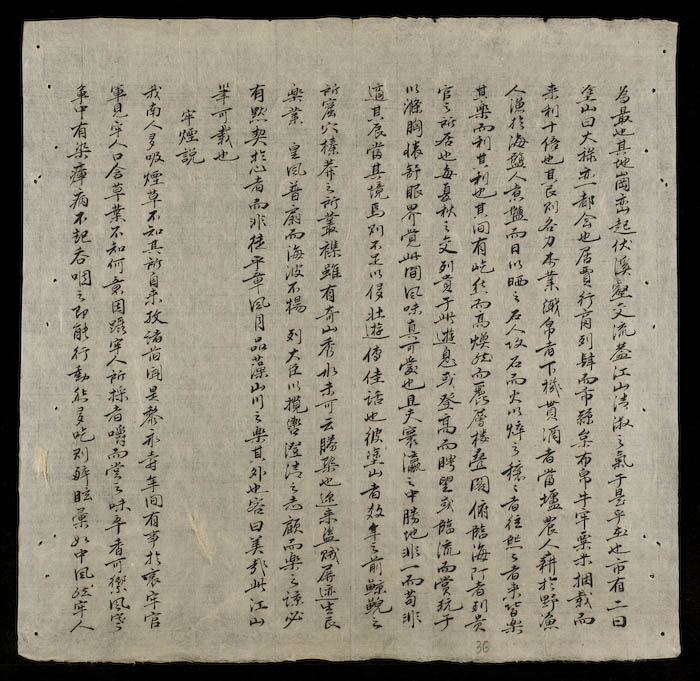 為最也其地崗巒起伏溪壑交流蓋江山清淑之氣于是乎在也市有二曰
塗山曰大操亦一都會也居賈行商列肆而市絲枲布帛牛羊粟米捆載而
来利十倍也其民則各力本業織帛者下機貫酒者當壚農人耕於野漁
人漁於海鹽人煑鹽而日以晒之石人攻石而火以焠之攘之者往熙之者来皆樂
其樂而利其利也其間有屹然而高煥然而麗層楼叠閣俯臨海阿者列貴
官之所居也每夏秋之交列貴于此遊息或登高而騁望或臨流而賞玩于
以滌胸懐舒眼界覚此間風味真可愛也且夫寰瀛之中勝地非一而苟非
適其辰當其境焉則不足以侈壮遊傳佳話也彼塗山者数年之前鯨鯢之
所窟穴榛莽之所叢襍雖有奇山秀水未可云勝槩也近来盗賊屏迹生民
樂業 皇風普扇而海波不揚 列大臣以攬轡澄清之志顧而樂之諒必
有黙契於心者而非徒平章風月品藻山川之樂其外也客曰美哉此江山
筆可載也
牢煙説
我南人多吸煙草不知其所自来攷諸前國是黎永壽年間有事於哀牢官
軍見牢人口含草葉不知何意因躡牢人所採者嚼而嘗之味辛香可禦風寒
軍中有染瘴病不起吞咽之即能行動然多吃則醉眩藁如中風然牢人
36